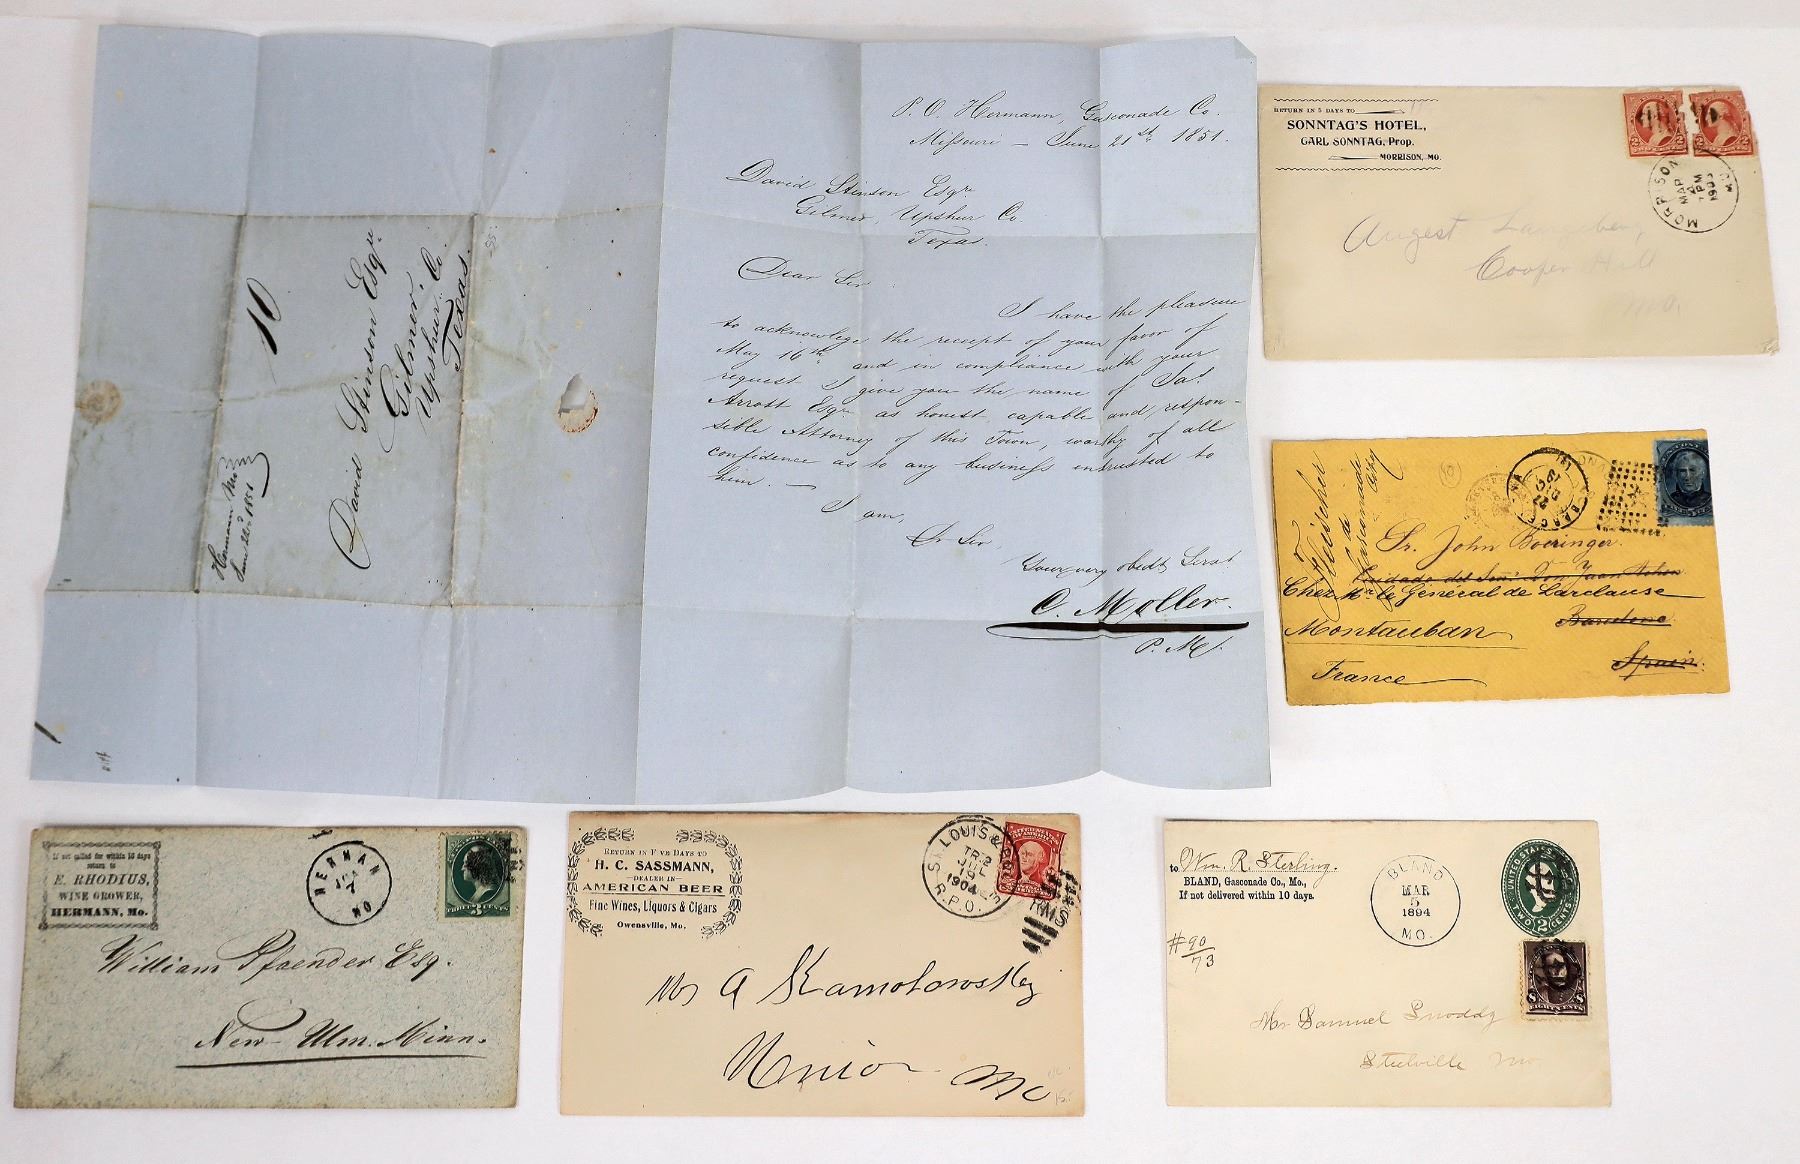 P. O. Hermann, Gasconade Co.
Missouri — June 21st 1851.
David Stinson Esqr
Gilmer, Upshur Co.
Texas.
Dear Sir
I have the pleasure
to acknowlege the receipt of your favor of
May 16th and in compliance with your
request I give you the name of Jas.
Arrott Esqr as honest, capable and respon-
sible Attorney of this Town, worthy of all
confidence as to any business entrusted to
him. —
I am,
Dr Sir,
Your very obedt Servt
C. Moller.
P. M.
10
David Stinson Esqre
Gilmer,
Upshur Co.
Texas.
Hermann Mo
June 22d 1851
RETURN IN 5 DAYS TO
SONNTAG'S HOTEL,
CARL SONNTAG, Prop.
MORRISON, MO.
MORRISON
MAR
7 PM
MO.
2 2
2 2
Augest Langeberg
Cooper Hill
Mo.
Fleischer
G. de
Gasconade
City
BARCELONA
Sr. John Boeringer
Cuidado del Senr. Don Juan
Chez Mr. le General de Larclause
Barcelona
Montauban
Spain.
France
If not called for within 10 days
return to
E. RHODIUS,
WINE GROWER,
HERMANN, Mo.
HERMAN
7
MO
THREE 3 CENTS
William Pfaender Esq.
New-Ulm. Minn.
RETURN IN FIVE DAYS TO
H. C. SASSMANN,
DEALER IN
AMERICAN BEER
Fine Wines, Liquors & Cigars
Owensville, Mo.
ST. LOUIS &
TR.2
JUL
19
1904
R.P.O.
RMS
Mr A Kamolowsky
Union Mo
to Wm. R. Sterling.
BLAND, Gasconade Co., Mo.,
If not delivered within 10 days.
BLAND
MAR
5
1894
MO.
UNITED STATES
TWO 2 CENTS
8 8
EIGHT CENTS
#90
73
Mr Samuel Snoddy
Steelville Mo